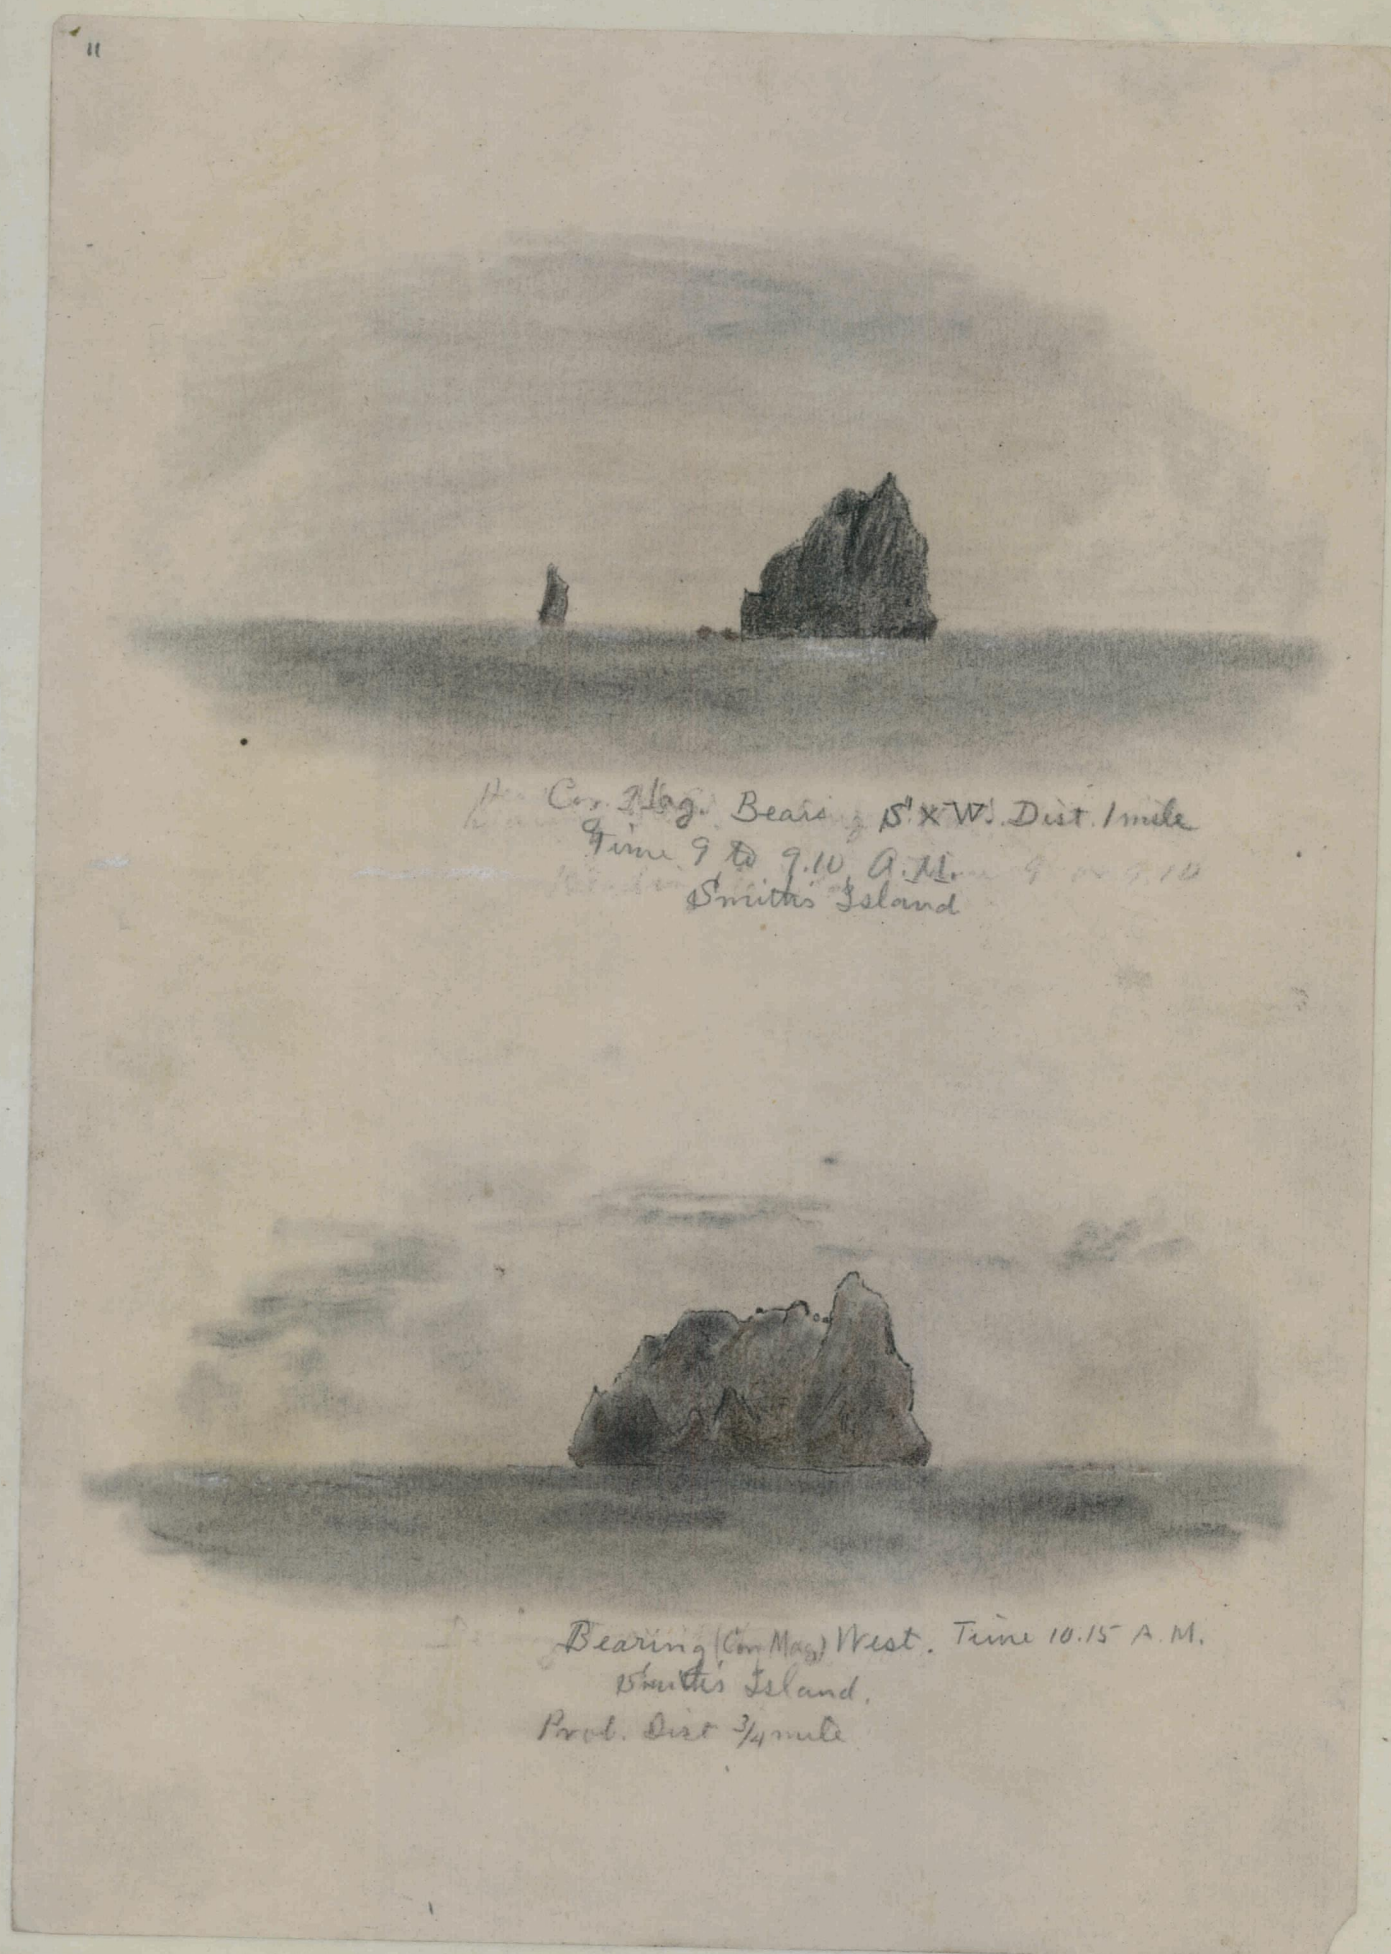 11
Cor. Mag. Bears S x W. Dist. 1 mile
Time 9 to 9.10 A.M.
Smith's Island
Bearing (Cor Mag) West. Time 10.15 A.M.
Smith's Island.
Prob. Dist 3/4 mile